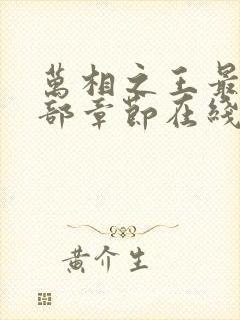 萬相之王最
部章節在綫
黄介生